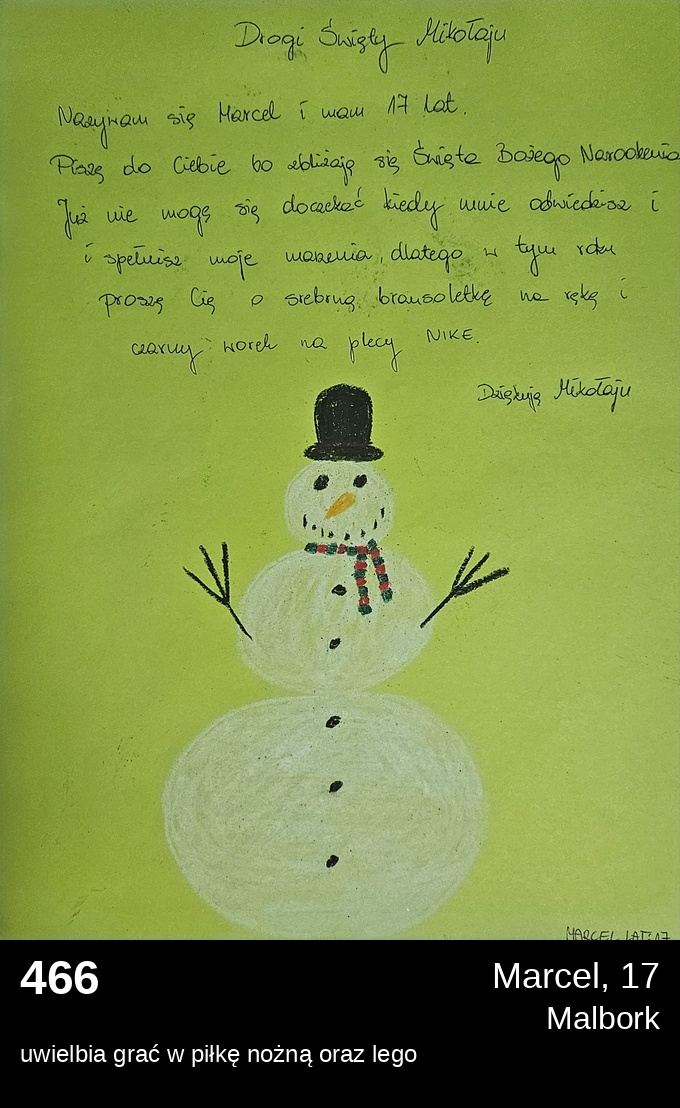 Drogi Święty Mikołaju
Nazywam się Marcel i mam 17 lat.
Piszę do Ciebie bo zbliżają się Święta Bożego Narodzenia
Już nie mogę się doczekać kiedy mnie odwiedzisz i
i spełnisz moje marzenia, dlatego w tym roku
proszę Cię o srebrną bransoletkę na rękę i
czarny worek na plecy NIKE.
Dziękuję Mikołaju
MARCEL LAT: 17
466
Marcel, 17
Malbork
uwielbia grać w piłkę nożną oraz lego